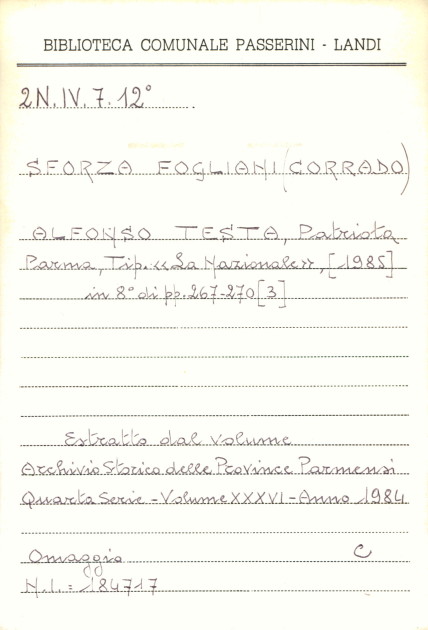 BIBLIOTECA COMUNALE PASSERINI - LANDI
2N.IV.7.12°
SFORZA FOGLIANI (CORRADO)
ALFONSO TESTA, Patriota
Parma, Tip. «La Nazionale», [1985]
in 8° di pp. 267-270 [3]
Estratto dal volume
Archivio Storico delle Province Parmensi
Quarta Serie - Volume XXXVI - Anno 1984
Omaggio C
N.I. = 184717